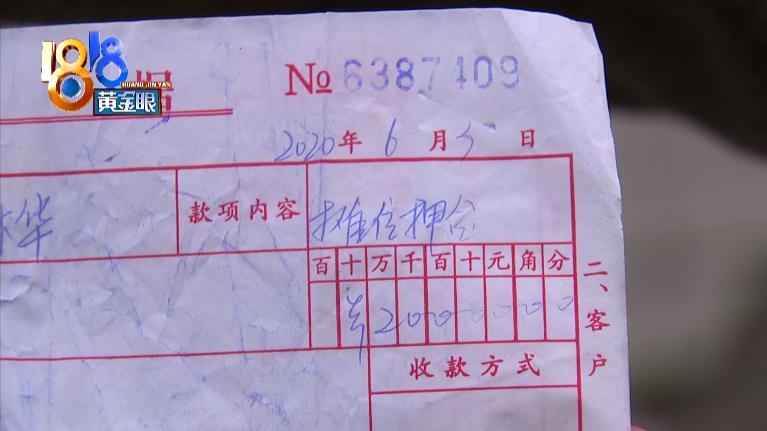 1818
HUANG JIN YAN
黄金眼
据
No 6387409
2020年6月5日
华 款项内容 摊位押金
百十万千百十元角分
¥2000000
收款方式
二、客户